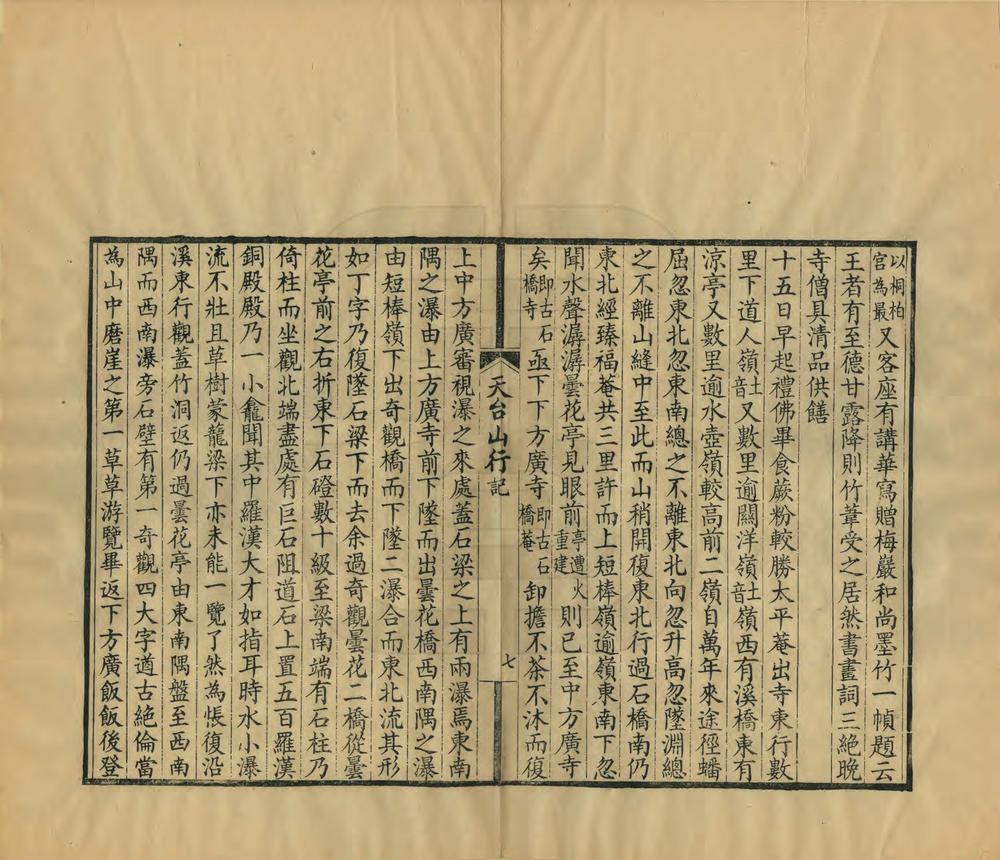 以桐柏宮為最又客座有講華寫贈梅嚴和尚墨竹一幀題云
王者有至德甘露降則竹葦受之居然書畫詞三絕晚
寺僧具清品供饍
十五日早起禮佛畢食蕨粉較勝太平菴出寺東行數
里下道人嶺土音又數里逾闗洋嶺土音嶺西有溪橋東有
涼亭又數里逾水壺嶺較高前二嶺自萬年來途徑蟠
屈忽東北忽東南總之不離東北向忽升高忽墜淵總
之不離山縫中至此而山稍開復東北行過石橋南仍
東北經臻福菴共三里許而上短棒嶺逾嶺東南下忽
聞水聲潺潺曇花亭見眼前亭遭火重建則已至中方廣寺
矣即古石橋寺亟下下方廣寺即古石橋菴卸擔不茶不沐而復
天台山行記
七
上中方廣審視瀑之來處蓋石梁之上有兩瀑焉東南
隅之瀑由上方廣寺前下墜而出曇花橋西南隅之瀑
由短棒嶺下出奇觀橋而下墜二瀑合而東北流其形
如丁字乃復墜石梁下而去余過奇觀曇花二橋從曇
花亭前之右折東下石磴數十級至梁南端有石柱乃
倚柱而坐觀北端盡處有巨石阻道石上置五百羅漢
銅殿殿乃一小龕聞其中羅漢大才如指耳時水小瀑
流不壯且草樹蒙龍梁下亦未能一覽了然為悵復沿
溪東行觀蓋竹洞返仍過曇花亭由東南隅盤至西南
隅而西南瀑旁石壁有第一奇觀四大字遒古絕倫當
為山中磨崖之第一草草游覽畢返下方廣飯飯後登